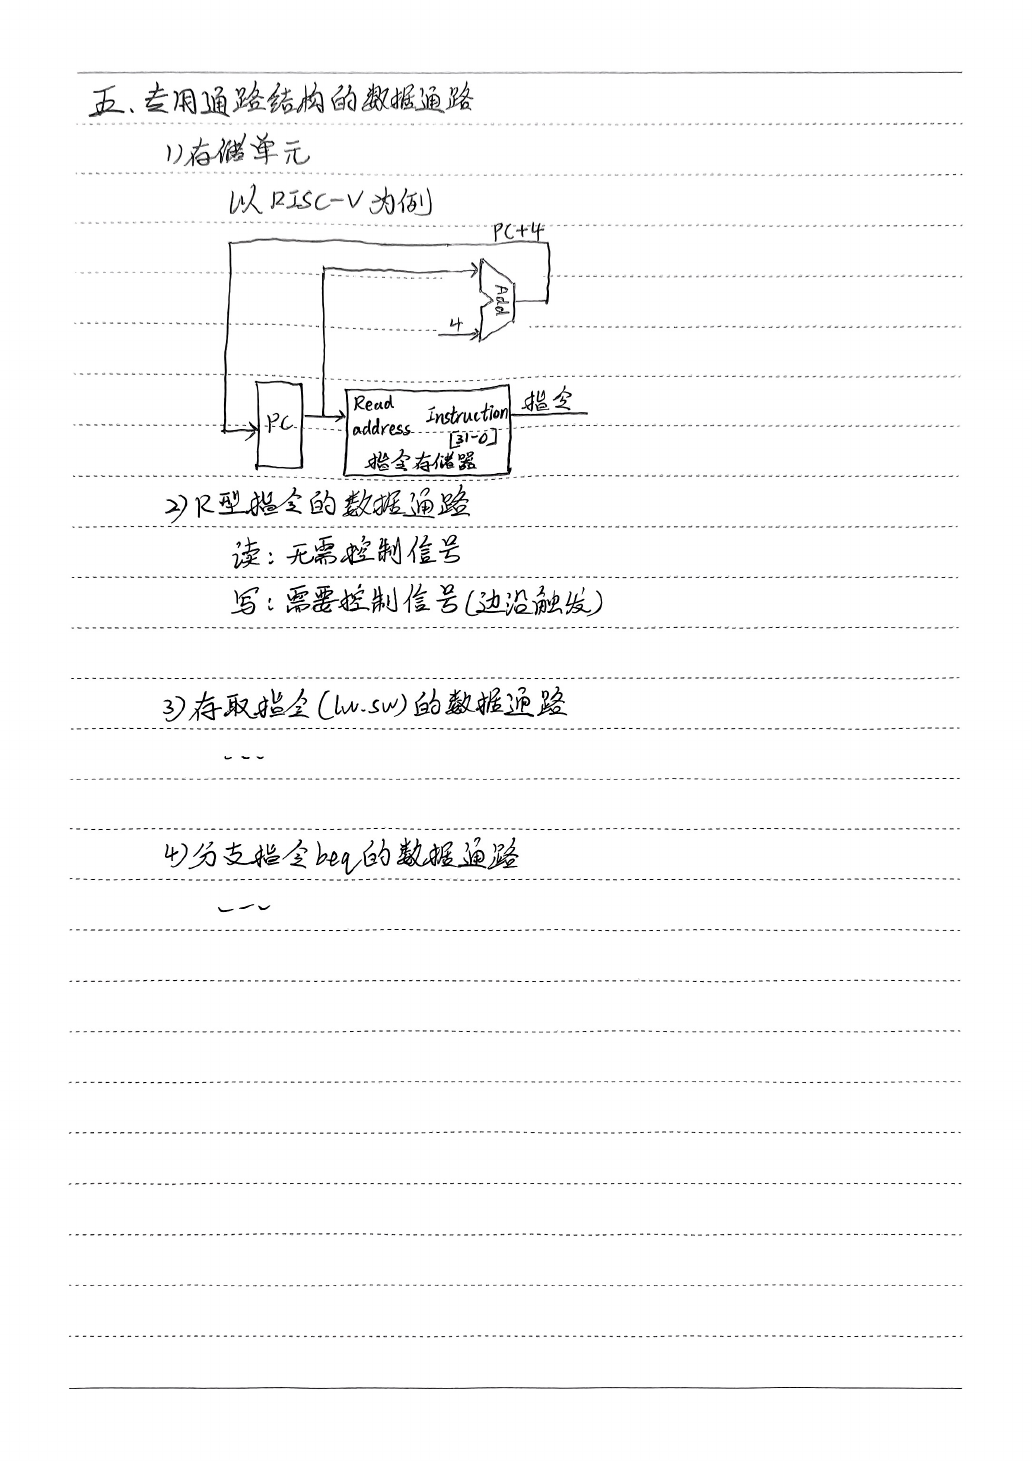 五、专用通路结构的数据通路
1)存储单元
以RISC-V为例
PC+4
Add
4
PC
Read address
Instruction [31-0]
指令存储器
指令
2)R型指令的数据通路
读:无需控制信号
写:需要控制信号(边沿触发)
3)存取指令(lw.sw)的数据通路
4)分支指令beq的数据通路